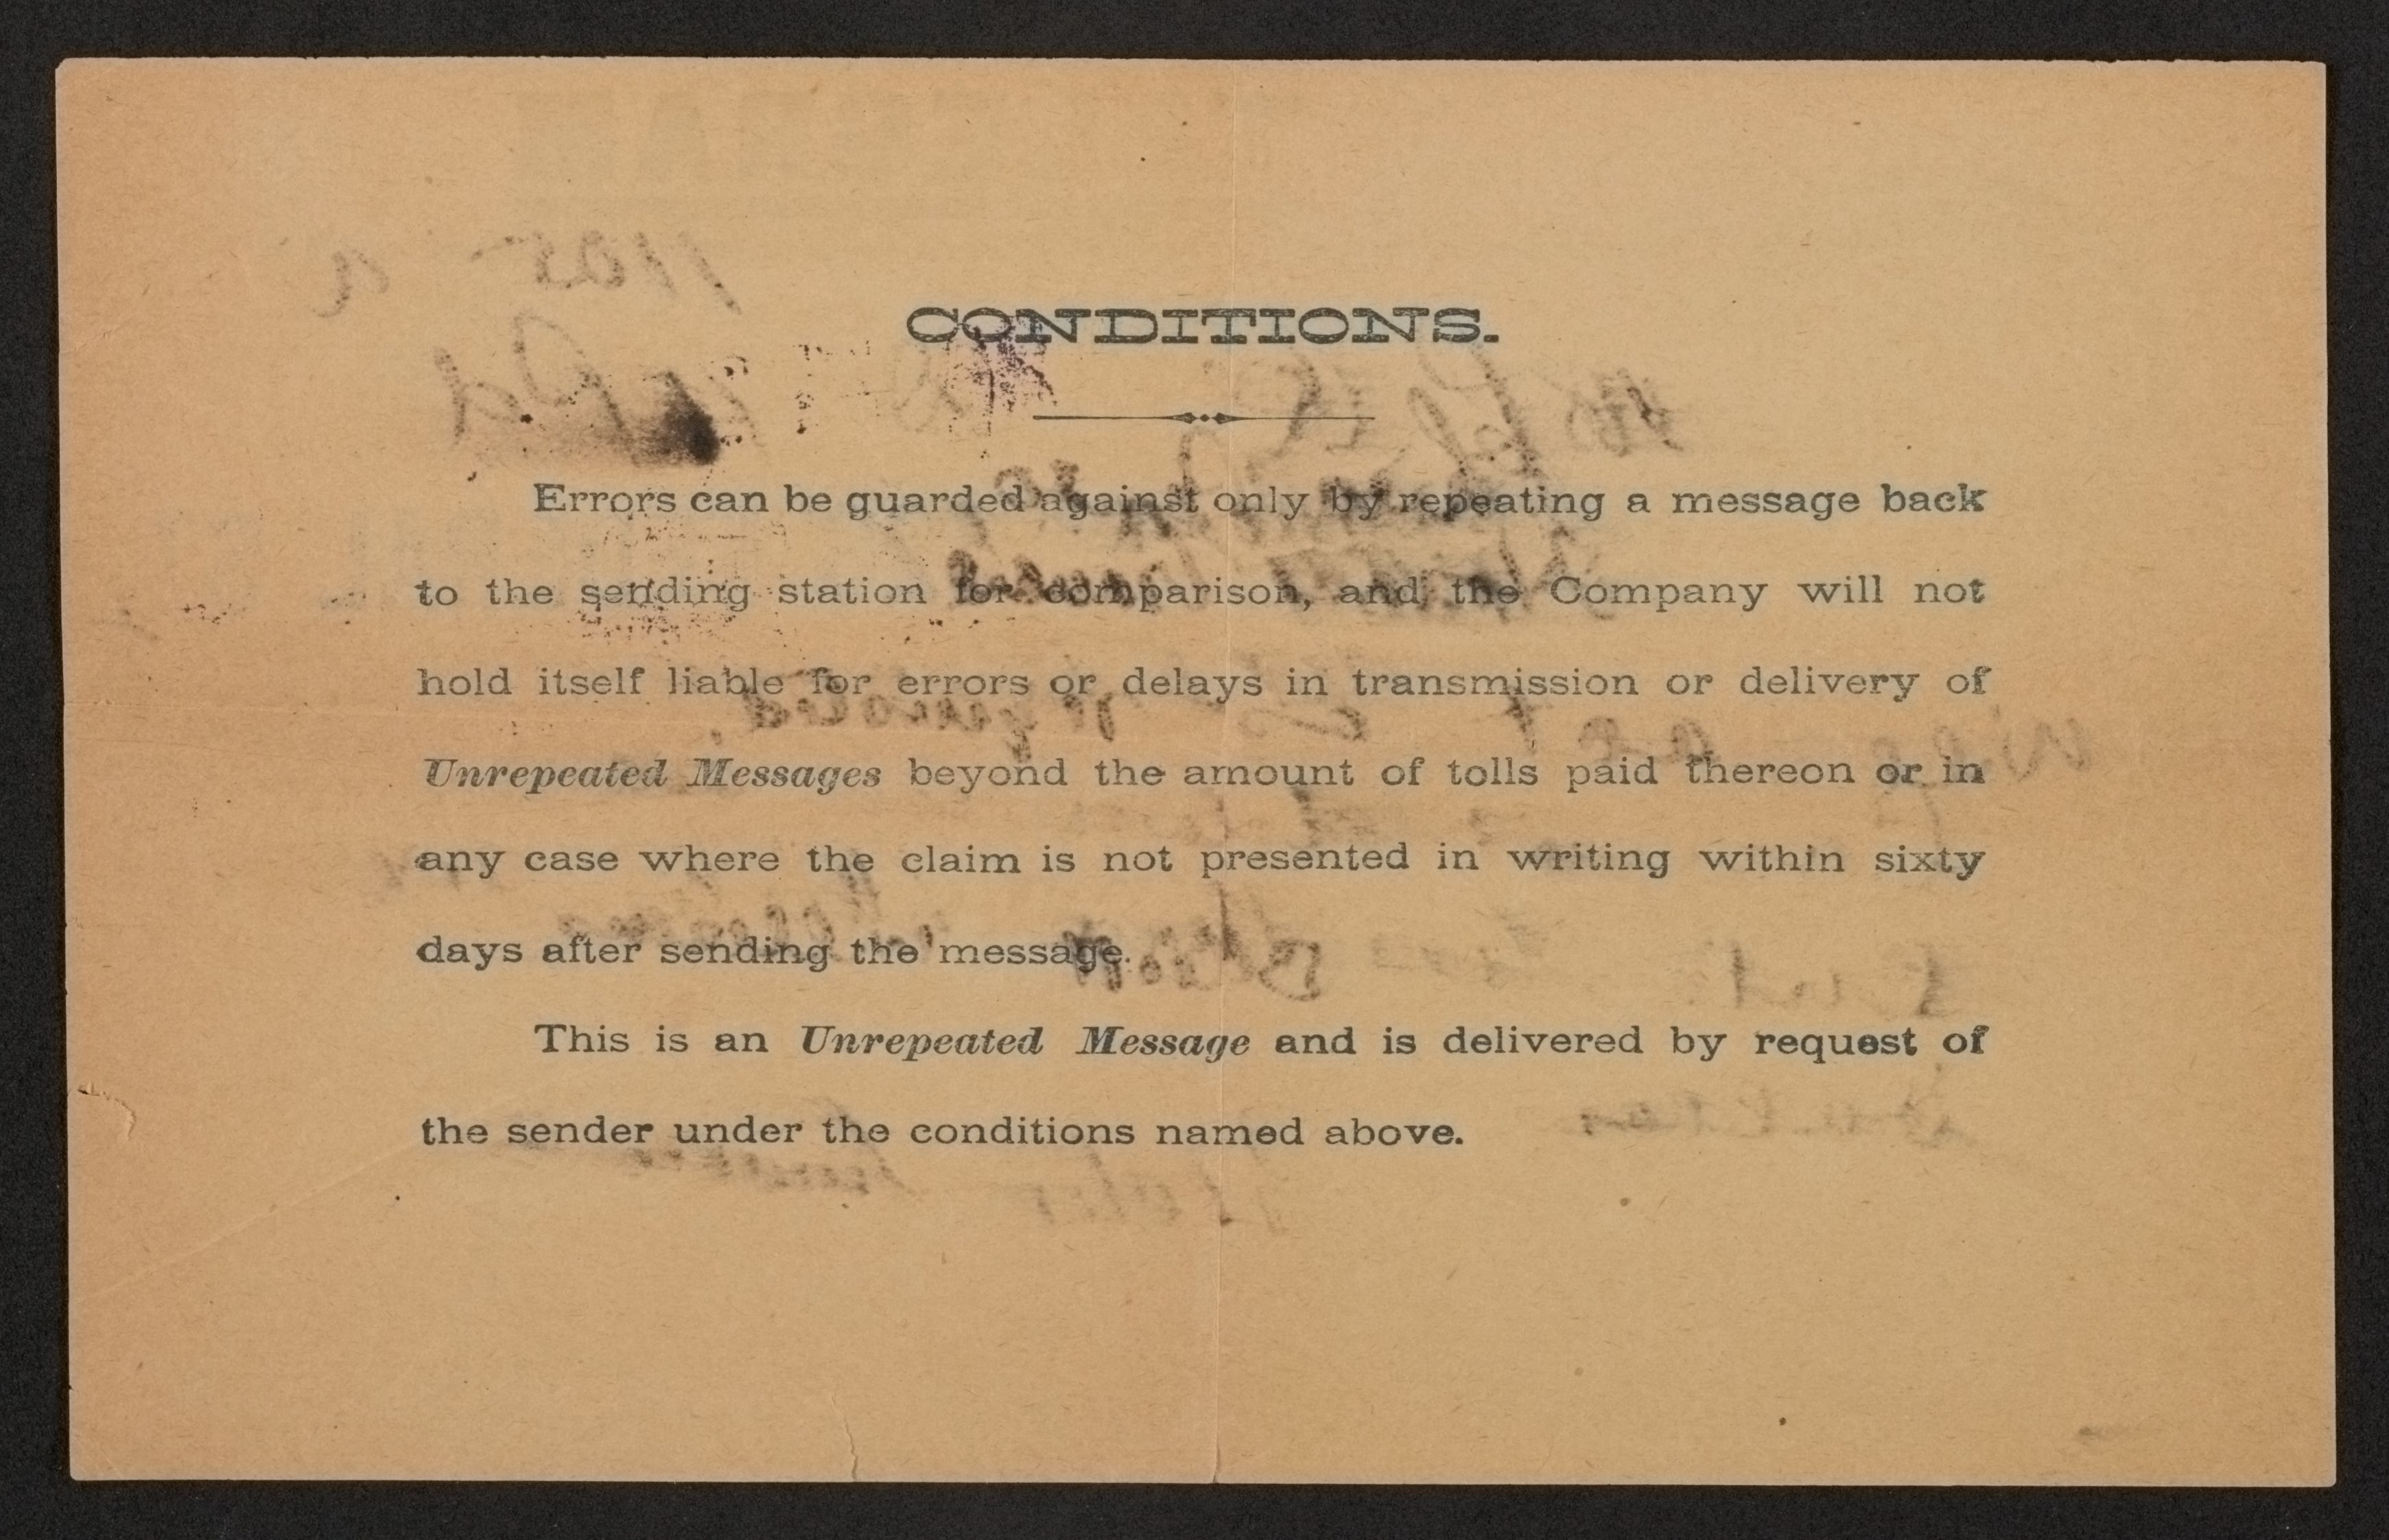 CONDITIONS.
Errors can be guarded against only by repeating a message back
to the sending station for comparison, and the Company will not
hold itself liable for errors or delays in transmission or delivery of
Unrepeated Messages beyond the amount of tolls paid thereon or in
any case where the claim is not presented in writing within sixty
days after sending the message.
This is an Unrepeated Message and is delivered by request of
the sender under the conditions named above.